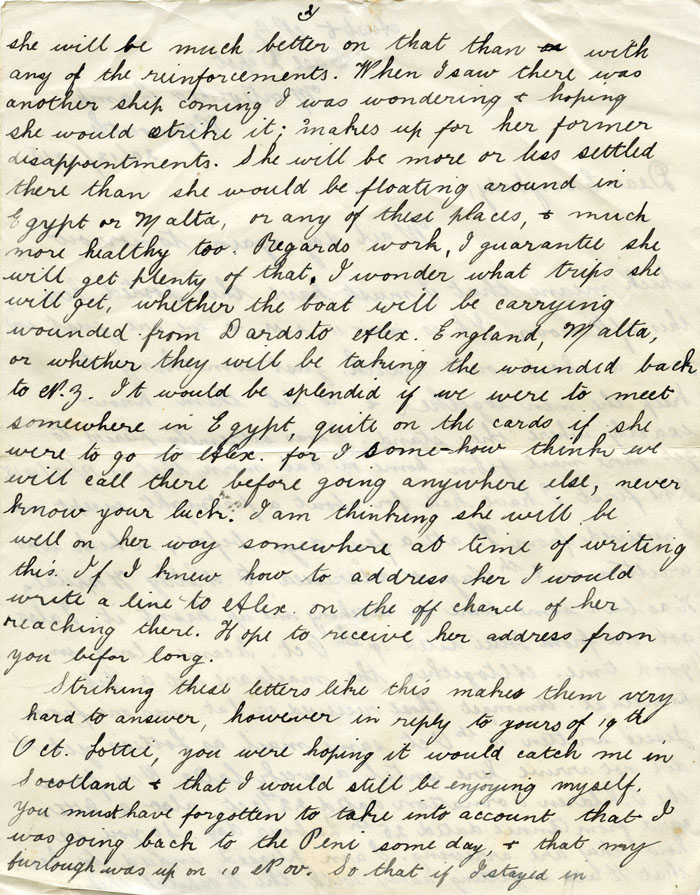 2
she will be much better on that than with
any of the reinforcements. When I saw there was
another ship coming I was wondering & hoping
she would strike it; makes up for her former
disappointments. She will be more or less settled
there than she would be floating around in
Egypt or Malta, or any of these places, & much
more healthy too. Regards work, I guarantee she
will get plenty of that. I wonder what trips she
will get, whether the boat will be carrying
wounded from Dards to Alex. England, Malta,
or whether they will be taking the wounded back
to N.Z. It would be splendid if we were to meet
somewhere in Egypt, quite on the cards if she
were to go to Alex. for I some-how think we
will call there before going anywhere else, never
know your luck. I am thinking she will be
well on her way somewhere at time of writing
this. If I knew how to address her I would
write a line to Alex. on the off chance of her
reaching there. Hope to receive her address from
you befor long.
Striking these letters like this makes them very
hard to answer, however in reply to yours of 19th
Oct. Lottie, you were hoping it would catch me in
Scotland & that I would still be enjoying myself.
You must have forgotten to take into account that I
was going back to the Peni some day, & that my
furlough was up on 10 Nov. So that if I stayed in